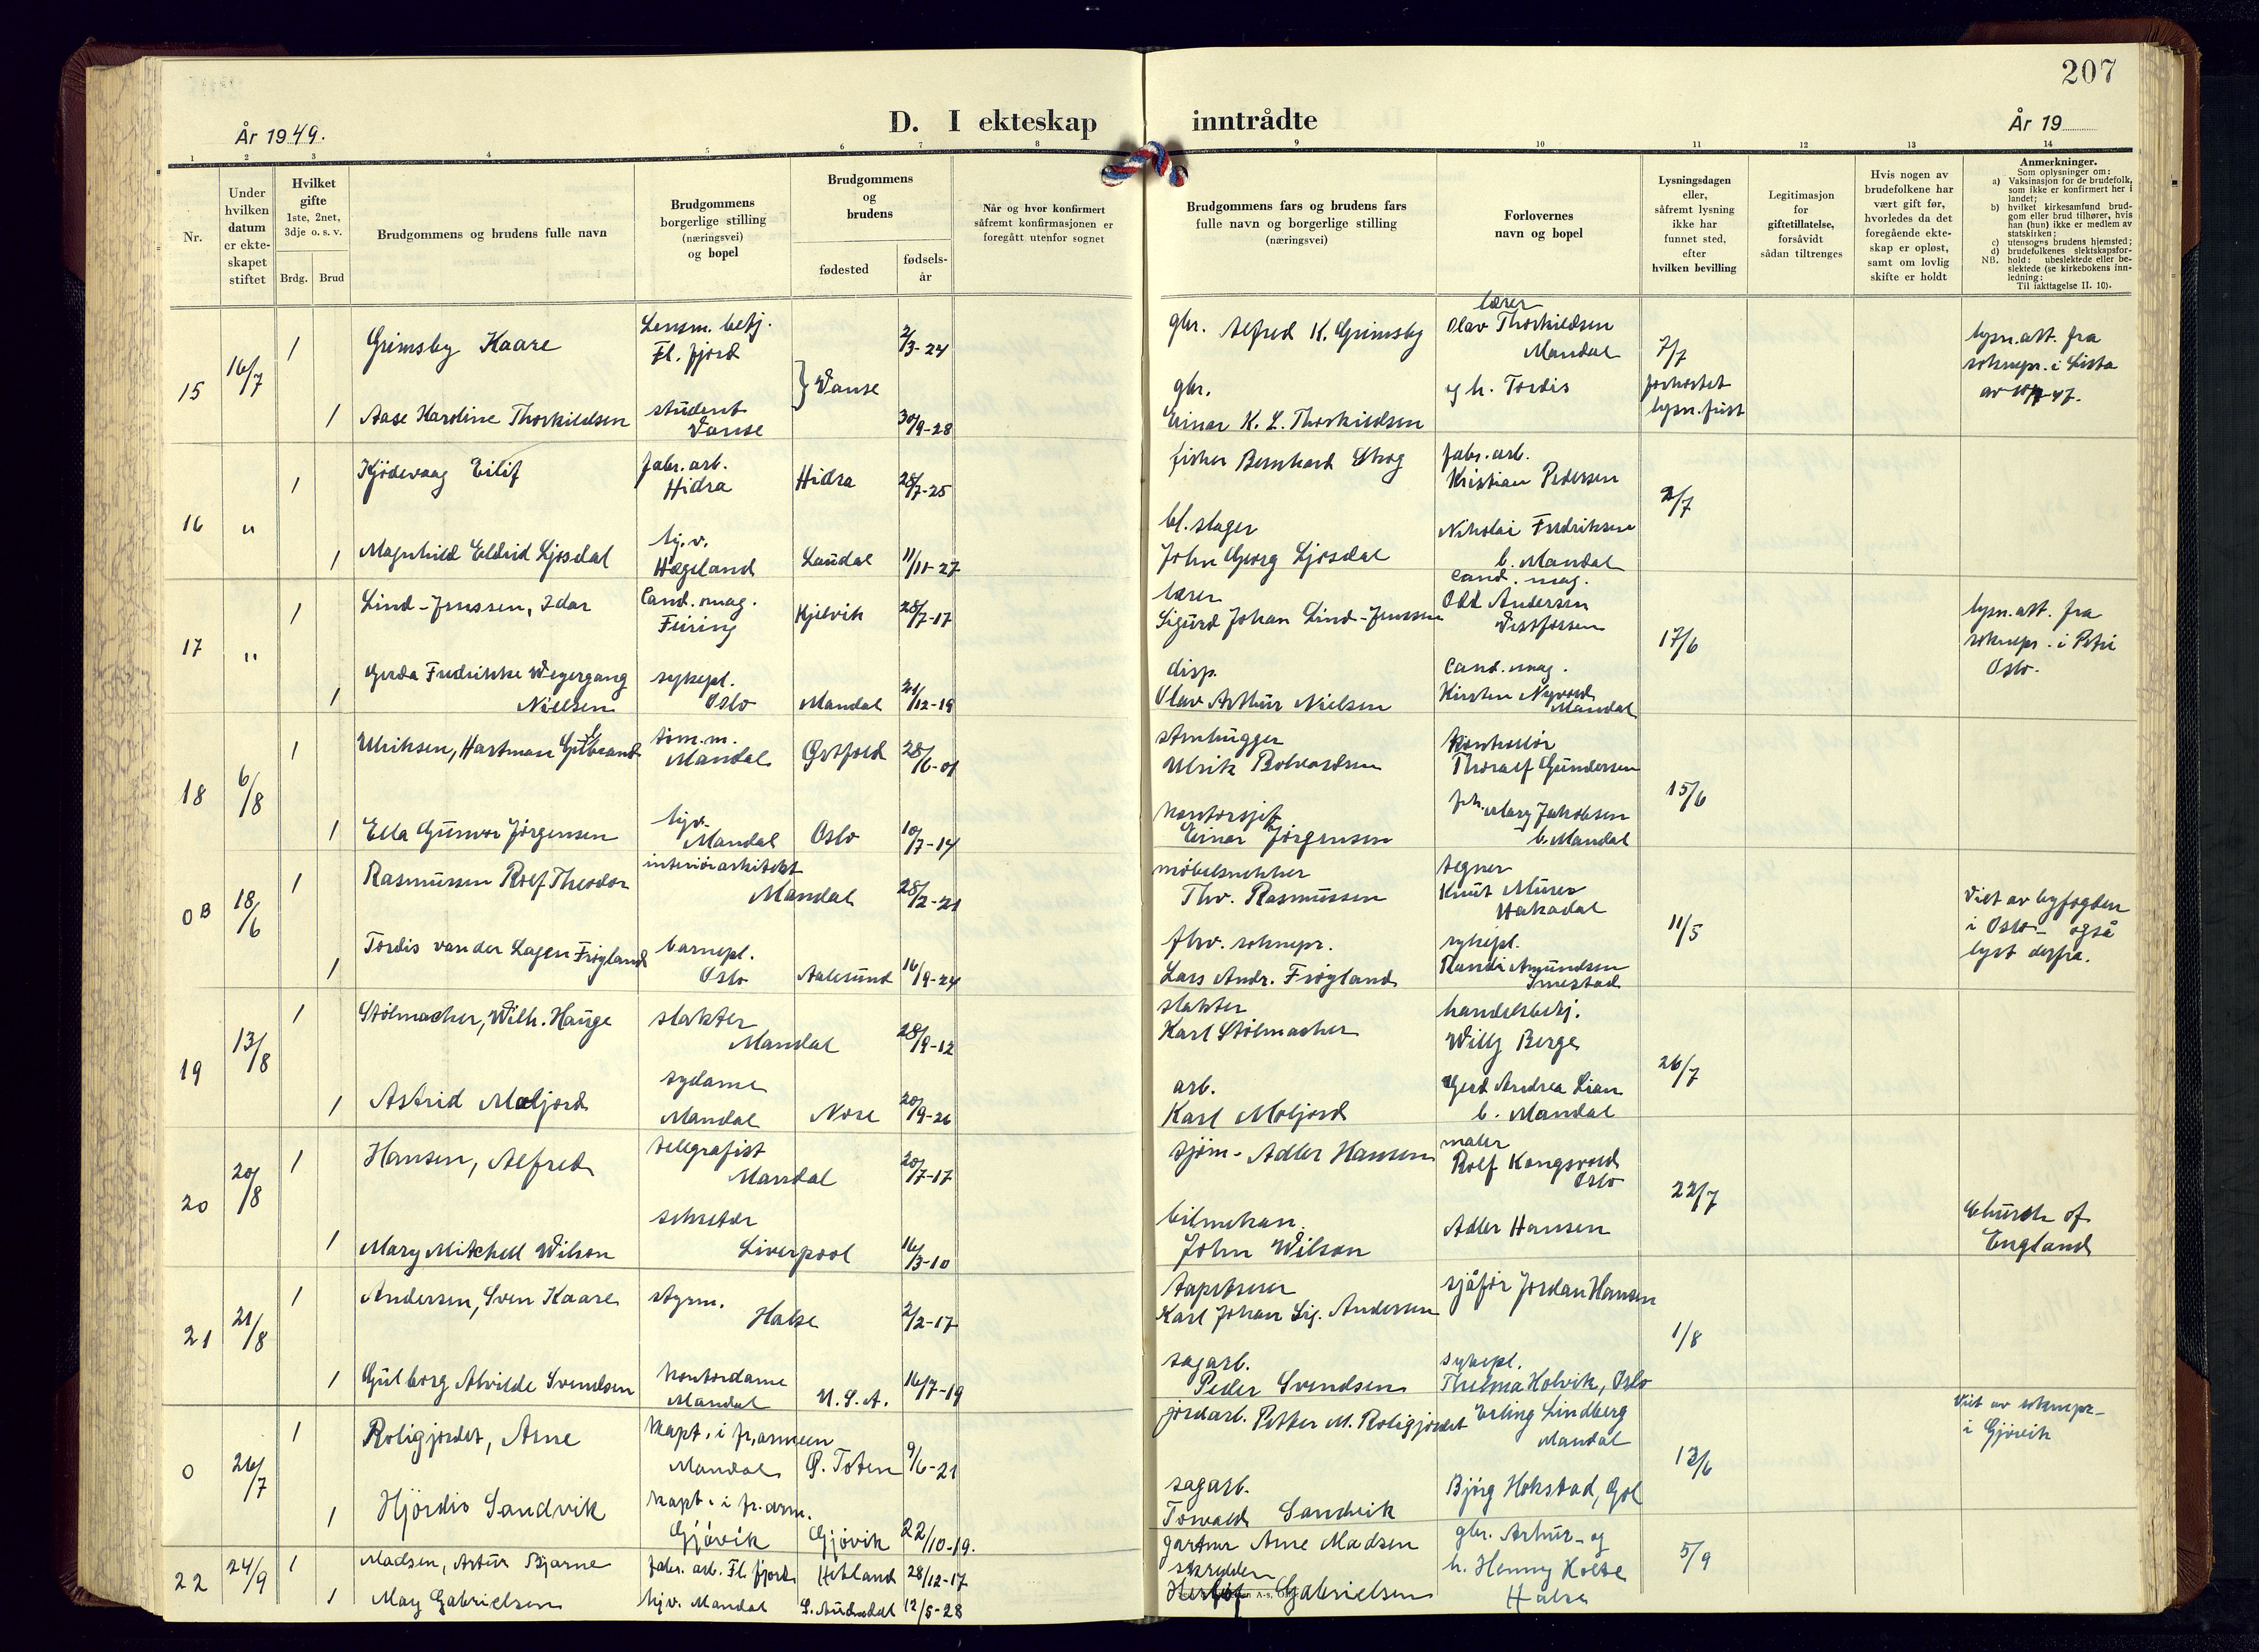 207
År 1949.
D. I ekteskap inntrådte
År 19
1 2 3 4 5 6 7 8 9 10 11 12 13 14
Nr.
Under hvilken datum er ekte- skapet stiftet
Hvilket gifte 1ste, 2net, 3dje o. s. v.
Brdg. Brud
Brudgommens og brudens fulle navn
Brudgommens borgerlige stilling (næringsvei) og bopel
Brudgommens og brudens
fødested
fødsels- år
Når og hvor konfirmert såfremt konfirmasjonen er foregått utenfor sognet
Brudgommens fars og brudens fars fulle navn og borgerlige stilling (næringsvei)
Forlovernes navn og bopel
Lysningsdagen eller, såfremt lysning ikke har funnet sted, efter hvilken bevilling
Legitimasjon for giftetillatelse, forsåvidt sådan tiltrenges
Hvis nogen av brudefolkene har vært gift før, hvorledes da det foregående ekte- skap er opløst, samt om lovlig skifte er holdt
Anmerkninger.
Som oplysninger om:
a) Vaksinasjon for de brudefolk, som ikke er konfirmert her i landet;
b) hvilket kirkesamfund brud- gom eller brud tilhører, hvis han (hun) ikke er medlem av statskirken;
c) utensogns brudens hjemsted;
d) brudefolkenes slektskapsfor- hold: ubeslektede eller be- slektede (se kirkebokens inn- ledning;
NB. Til iakttagelse II. 10).
15 16/7 1 Grimsby Kaare Lensm. betj. Fl. fjord 2/3-24 gbr. Alfred K. Grimsby lærer Olav Thorkildsen Mandal 7/7 lysn. att. fra soknepr. i Lista
1 Aase Karoline Thorkildsen student Vanse } Vanse 30/9-28 gbr. Einar K. L. Thorkildsen og h. Tordis forkortet lysn. frist
16 " 1 Kjødevaag Eilif fabr. arb. Hidra Hidra 28/7-25 fisker Bernhard Skog fabr. arb. Kristian Pedersen 2/7
1 Magnhild Eldrid Ljosdal hj. v. Hægeland Laudal 11/11-27 bl. slager John Georg Ljosdal Nikolai Fredriksen b. Mandal
17 " 1 Lind-Jenssen, Idar Cand. mag. Feiring Kjelvik 28/7-17 lærer Sigurd Johan Lind-Jenssen Cand. mag. Odd Andersen Vestfossen 17/6 lysn. att. fra soknepr. i Petri Oslo.
1 Gerda Fredrikke Wegergang Nielsen sykepl. Oslo Mandal 21/12-19 disp. Olav Arthur Nielsen Cand. mag. Kirsten Nyvold Mandal
18 6/8 1 Ulriksen, Hartman Gulbrand tøm. m. Mandal Østfold 28/6-01 stenhugger Ulrik Bolvardsen Kontrollør Thoralf Gundersen 15/6
1 Ella Gunvor Jørgensen hjv. Mandal Oslo 10/7-14 kontorsjef Einar Jørgensen frk. Mary Jakobsen b. Mandal
0B 18/6 1 Rasmussen Rolf Theodor interiørarkitekt Mandal 28/2-21 møbelsnekker Thv. Rasmussen tegner Knut Murer Hakadal 11/5 Viet av byfogden i Oslo - også lyst derfra.
1 Tordis van der Lagen Frøyland barnepl. Oslo Aalesund 16/9-24 fhv. soknepr. Lars Andr. Frøyland sykepl. Randi Amundsen
19 13/8 1 Stølmacher, Wilh. Hauge slakter Mandal 28/9-12 slakter Karl Stølmacher handelsbetj. Willy Berge 26/7
1 Astrid Moljord sydame Mandal Nore 20/9-26 arb. Karl Moljord Gerd Andrea Lian b. Mandal
20 20/8 1 Hansen, Alfred telegrafist Mandal 20/7-17 sjøm. Adler Hansen maler Rolf Kongsvold Oslo 22/7
1 Mary Mitchell Wilson sekretær Liverpool 16/3-10 bilmekan. John Wilson Adler Hansen Church of England
21 21/8 1 Andersen, Sven Kaare styrm. Halse 2/2-17 tapetserer Karl Johan Sig. Andersen sjåfør Jordan Hansen 1/8
1 Gulborg Alvilde Svendsen kontordame Mandal U.S.A. 16/7-19 sagarb. Peder Svendsen sykepl. Thelma Holvik, Oslo
0 26/7 1 Roligjordet, Arne kapt. i fr. armeen Mandal Ø. Toten 9/6-21 jordarb. Petter M. Roligjordet Erling Lindberg Mandal 13/6 Viet av soknepr. i Gjøvik
1 Hjördis Sandvik kapt. i fr. arm. Gjøvik Gjøvik 22/10-19. sagarb. Torvald Sandvik Bjørg Hokstad, Gol
22 24/9 1 Madsen, Artur Bjarne fabr. arb. Fl. fjord Hetland 28/12-17 gartner Arne Madsen gbr. Arthur og 5/9
1 May Gabrielsen hjv. Mandal S. Audnedal 12/5-28 skredder Herlof Gabrielsen h. Henny Holte Halse